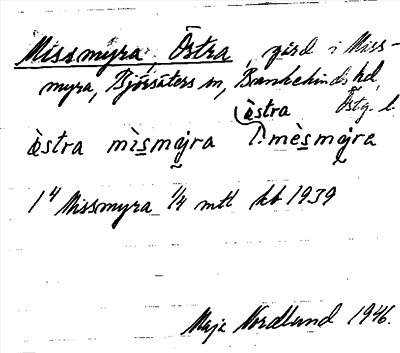 Missmyra, Östra, gård i Miss-
myra, Björsäters sn, Bankekinds hd,
Östg. l.
östra
àstra mìsmøjra l. mèsmøjra
1⁴ Missmyra 1/4 mtl kb 1939
Maja Nordlund 1946.